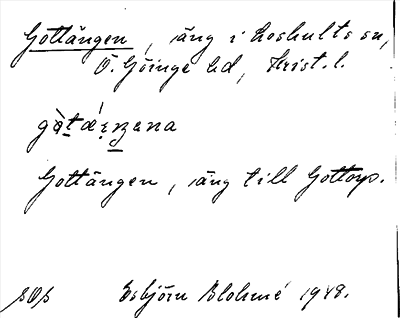 Gottängen, äng i Loshults sn,
Ö. Göinge hd, Krist. l.
gò̀tæ̀ŋena
Gottängen, äng till Gottorp.
Esbjörn Blohmé 1948.